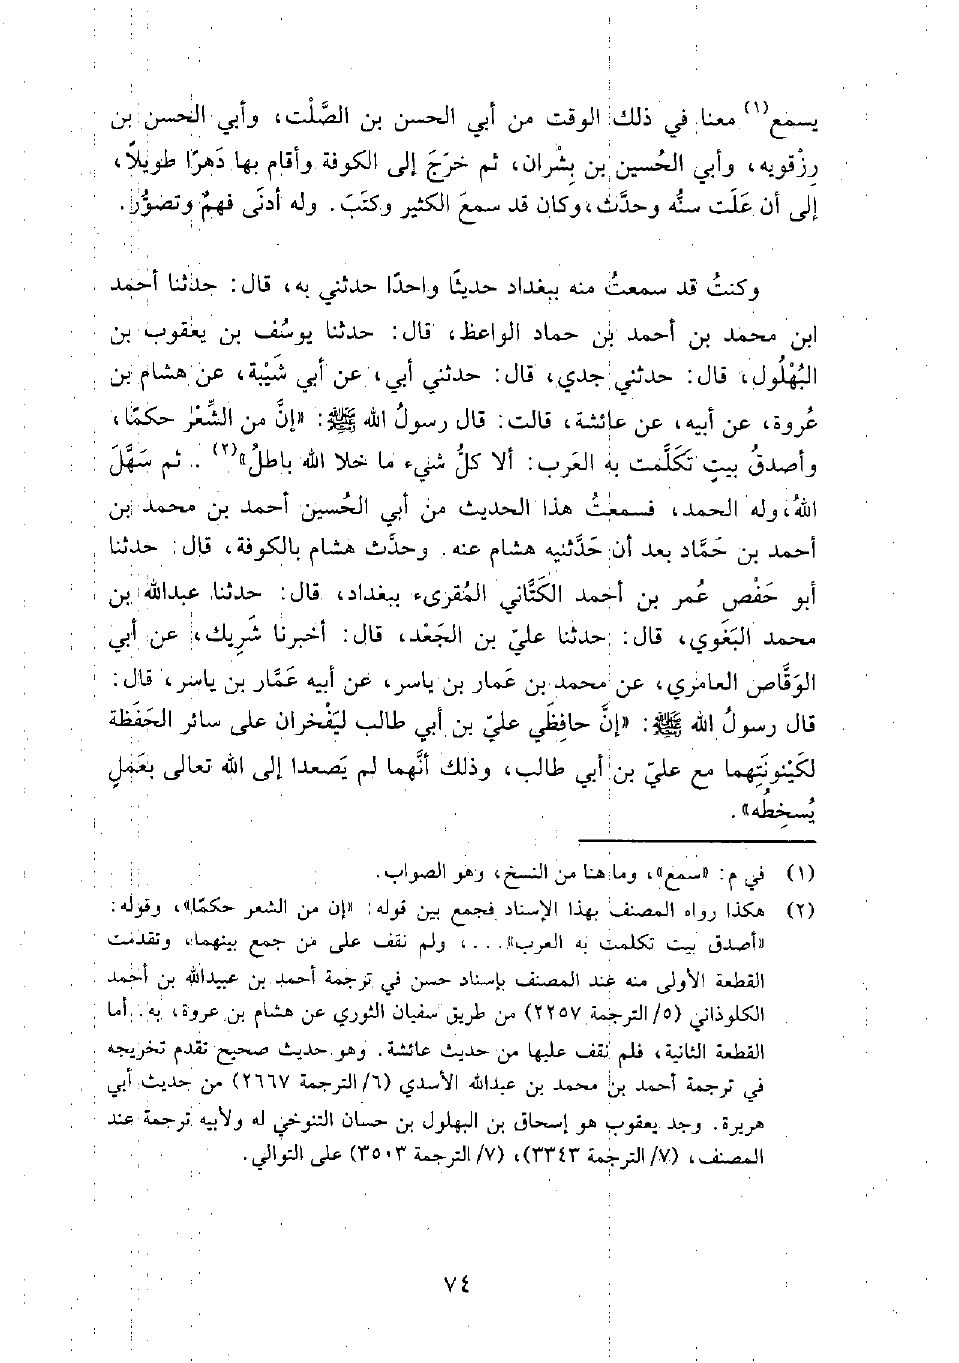 يسمع(١) معنا في ذلك الوقت من أبي الحسن بن الصَّلْت، وأبي الحسن بن
رِزْقويه، وأبي الحُسين بن بِشْران، ثم خرَجَ إلى الكوفة وأقام بها دَهرًا طويلاً،
إلى أن عَلَت سنُّه وحدَّث، وكان قد سمعَ الكثير وكتَبَ. وله أدنَى فهمٌ وتصوُّر.
وكنتُ قد سمعتُ منه ببغداد حديثًا واحدًا حدثني به، قال: حدثنا أحمد
ابن محمد بن أحمد بن حماد الواعظ، قال: حدثنا يوسُف بن يعقوب بن
البُهْلُول، قال: حدثني جدي، قال: حدثني أبي، عن أبي شَيْبة، عن هشام بن
عُروة، عن أبيه، عن عائشة، قالت: قال رسولُ الله ﷺ: «إنَّ من الشِّعْر حكمًا،
وأصدقُ بيتٍ تَكلَّمت به العَرب: ألا كلُّ شيء ما خلا الله باطلُ»(٢). ثم سَهَّلَ
اللهُ، وله الحمد، فسمعتُ هذا الحديث من أبي الحُسين أحمد بن محمد بن
أحمد بن حَمَّاد بعد أن حَدَّثنيه هشام عنه. وحدَّث هشام بالكوفة، قال: حدثنا
أبو حَفْص عُمر بن أحمد الكَتَّاني المُقرىء ببغداد، قال: حدثنا عبدالله بن
محمد البَغَوي، قال: حدثنا عليّ بن الجَعْد، قال: أخبرنا شَرِيك، عن أبي
الوَقَّاص العامري، عن محمد بن عَمار بن ياسر، عن أبيه عَمَّار بن ياسر، قال:
قال رسولُ الله ﷺ: «إنَّ حافِظَي عليّ بن أبي طالب ليَفْخران على سائر الحَفَظة
لكَيْنونَتِهما مع عليّ بن أبي طالب، وذلك أنَّهما لم يَصعدا إلى الله تعالى بعَملٍ
يُسخِطُه».
(١) في م: «سمع»، وما هنا من النسخ، وهو الصواب.
(٢) هكذا رواه المصنف بهذا الإسناد فجمع بين قوله: «إن من الشعر حكمًا»، وقوله:
«أصدق بيت تكلمت به العرب»...، ولم نقف على من جمع بينهما، وتقدمت
القطعة الأولى منه عند المصنف بإسناد حسن في ترجمة أحمد بن عبيدالله بن أحمد
الكلوذاني (٥/ الترجمة ٢٢٥٧) من طريق سفيان الثوري عن هشام بن عروة، به. أما
القطعة الثانية، فلم نقف عليها من حديث عائشة. وهو حديث صحيح تقدم تخريجه
في ترجمة أحمد بن محمد بن عبدالله الأسدي (٦/ الترجمة ٢٦٦٧) من حديث أبي
هريرة. وجد يعقوب هو إسحاق بن البهلول بن حسان التنوخي له ولأبيه ترجمة عند
المصنف، (٧/ الترجمة ٣٣٤٣)، (٧/ الترجمة ٣٥٠٣) على التوالي.
٧٤